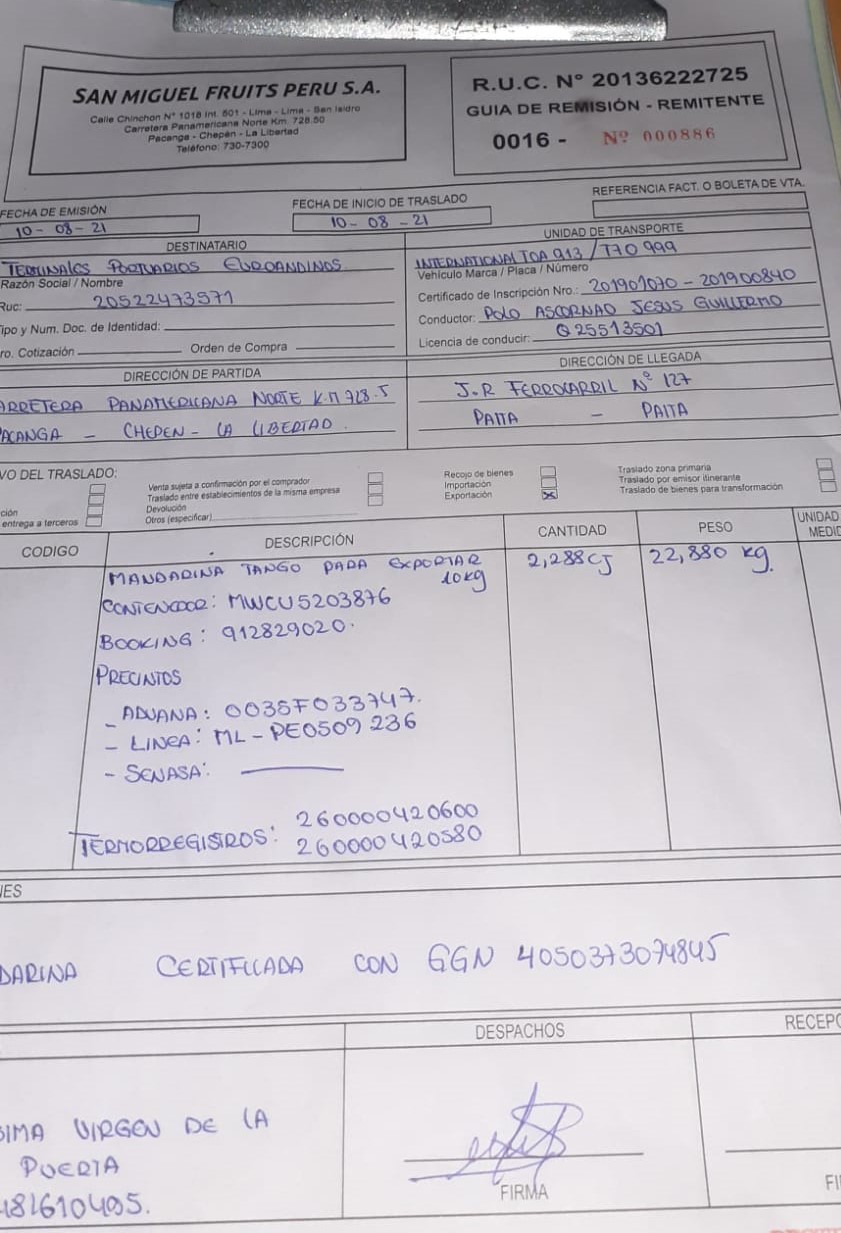 SAN MIGUEL FRUITS PERU S.A.
Calle Chinchon N° 1018 Int. 601 - Lima - Lima - San Isidro
Carretera Panamericana Norte Km. 728.50
Pacanga - Chepén - La Libertad
Teléfono: 730-7300
R.U.C. N° 20136222725
GUIA DE REMISIÓN - REMITENTE
0016 - Nº 000886
FECHA DE EMISIÓN
10-08-21
FECHA DE INICIO DE TRASLADO
10-08-21
REFERENCIA FACT. O BOLETA DE VTA.
DESTINATARIO
TERMINALES PORTUARIOS EUROANDINOS
Razón Social / Nombre
Ruc: 20522473571
Tipo y Num. Doc. de Identidad:
ro. Cotización Orden de Compra
UNIDAD DE TRANSPORTE
INTERNATIONAL TOA 913 / T70 999
Vehículo Marca / Placa / Número
Certificado de Inscripción Nro.: 201901070 - 201900840
Conductor: POLO ASCORNAO JESUS GUILLERMO
Licencia de conducir: Q25513501
DIRECCIÓN DE PARTIDA
ARRETERA PANAMERICANA NORTE K.M 728.5
PACANGA - CHEPEN - LA LIBERTAD.
DIRECCIÓN DE LLEGADA
J.R FERROCARRIL N° 127
PAITA - PAITA
VO DEL TRASLADO:
ción
entrega a terceros
Venta sujeta a confirmación por el comprador
Traslado entre establecimientos de la misma empresa
Devolución
Otros (especificar)
Recojo de bienes
Importación
Exportación X
Traslado zona primaria
Traslado por emisor itinerante
Traslado de bienes para transformación
CODIGO DESCRIPCIÓN CANTIDAD PESO UNIDAD
MEDID
MANDARINA TANGO PARA EXPORTAR 2,288CJ 22,880 kg.
10kg
CONTENEDOR: MWCU5203876
BOOKING: 912829020.
PRECINTOS
- ADUANA: 0035F033747.
- LINEA: ML-PE0509236
- SENASA:
TERMORREGISTROS: 260000420600
260000420580
NES
DARINA CERTIFICADA CON GGN 4050373074845
DESPACHOS
RECEPC
SIMA VIRGEN DE LA
PUERTA
481610495.
FIRMA
FI